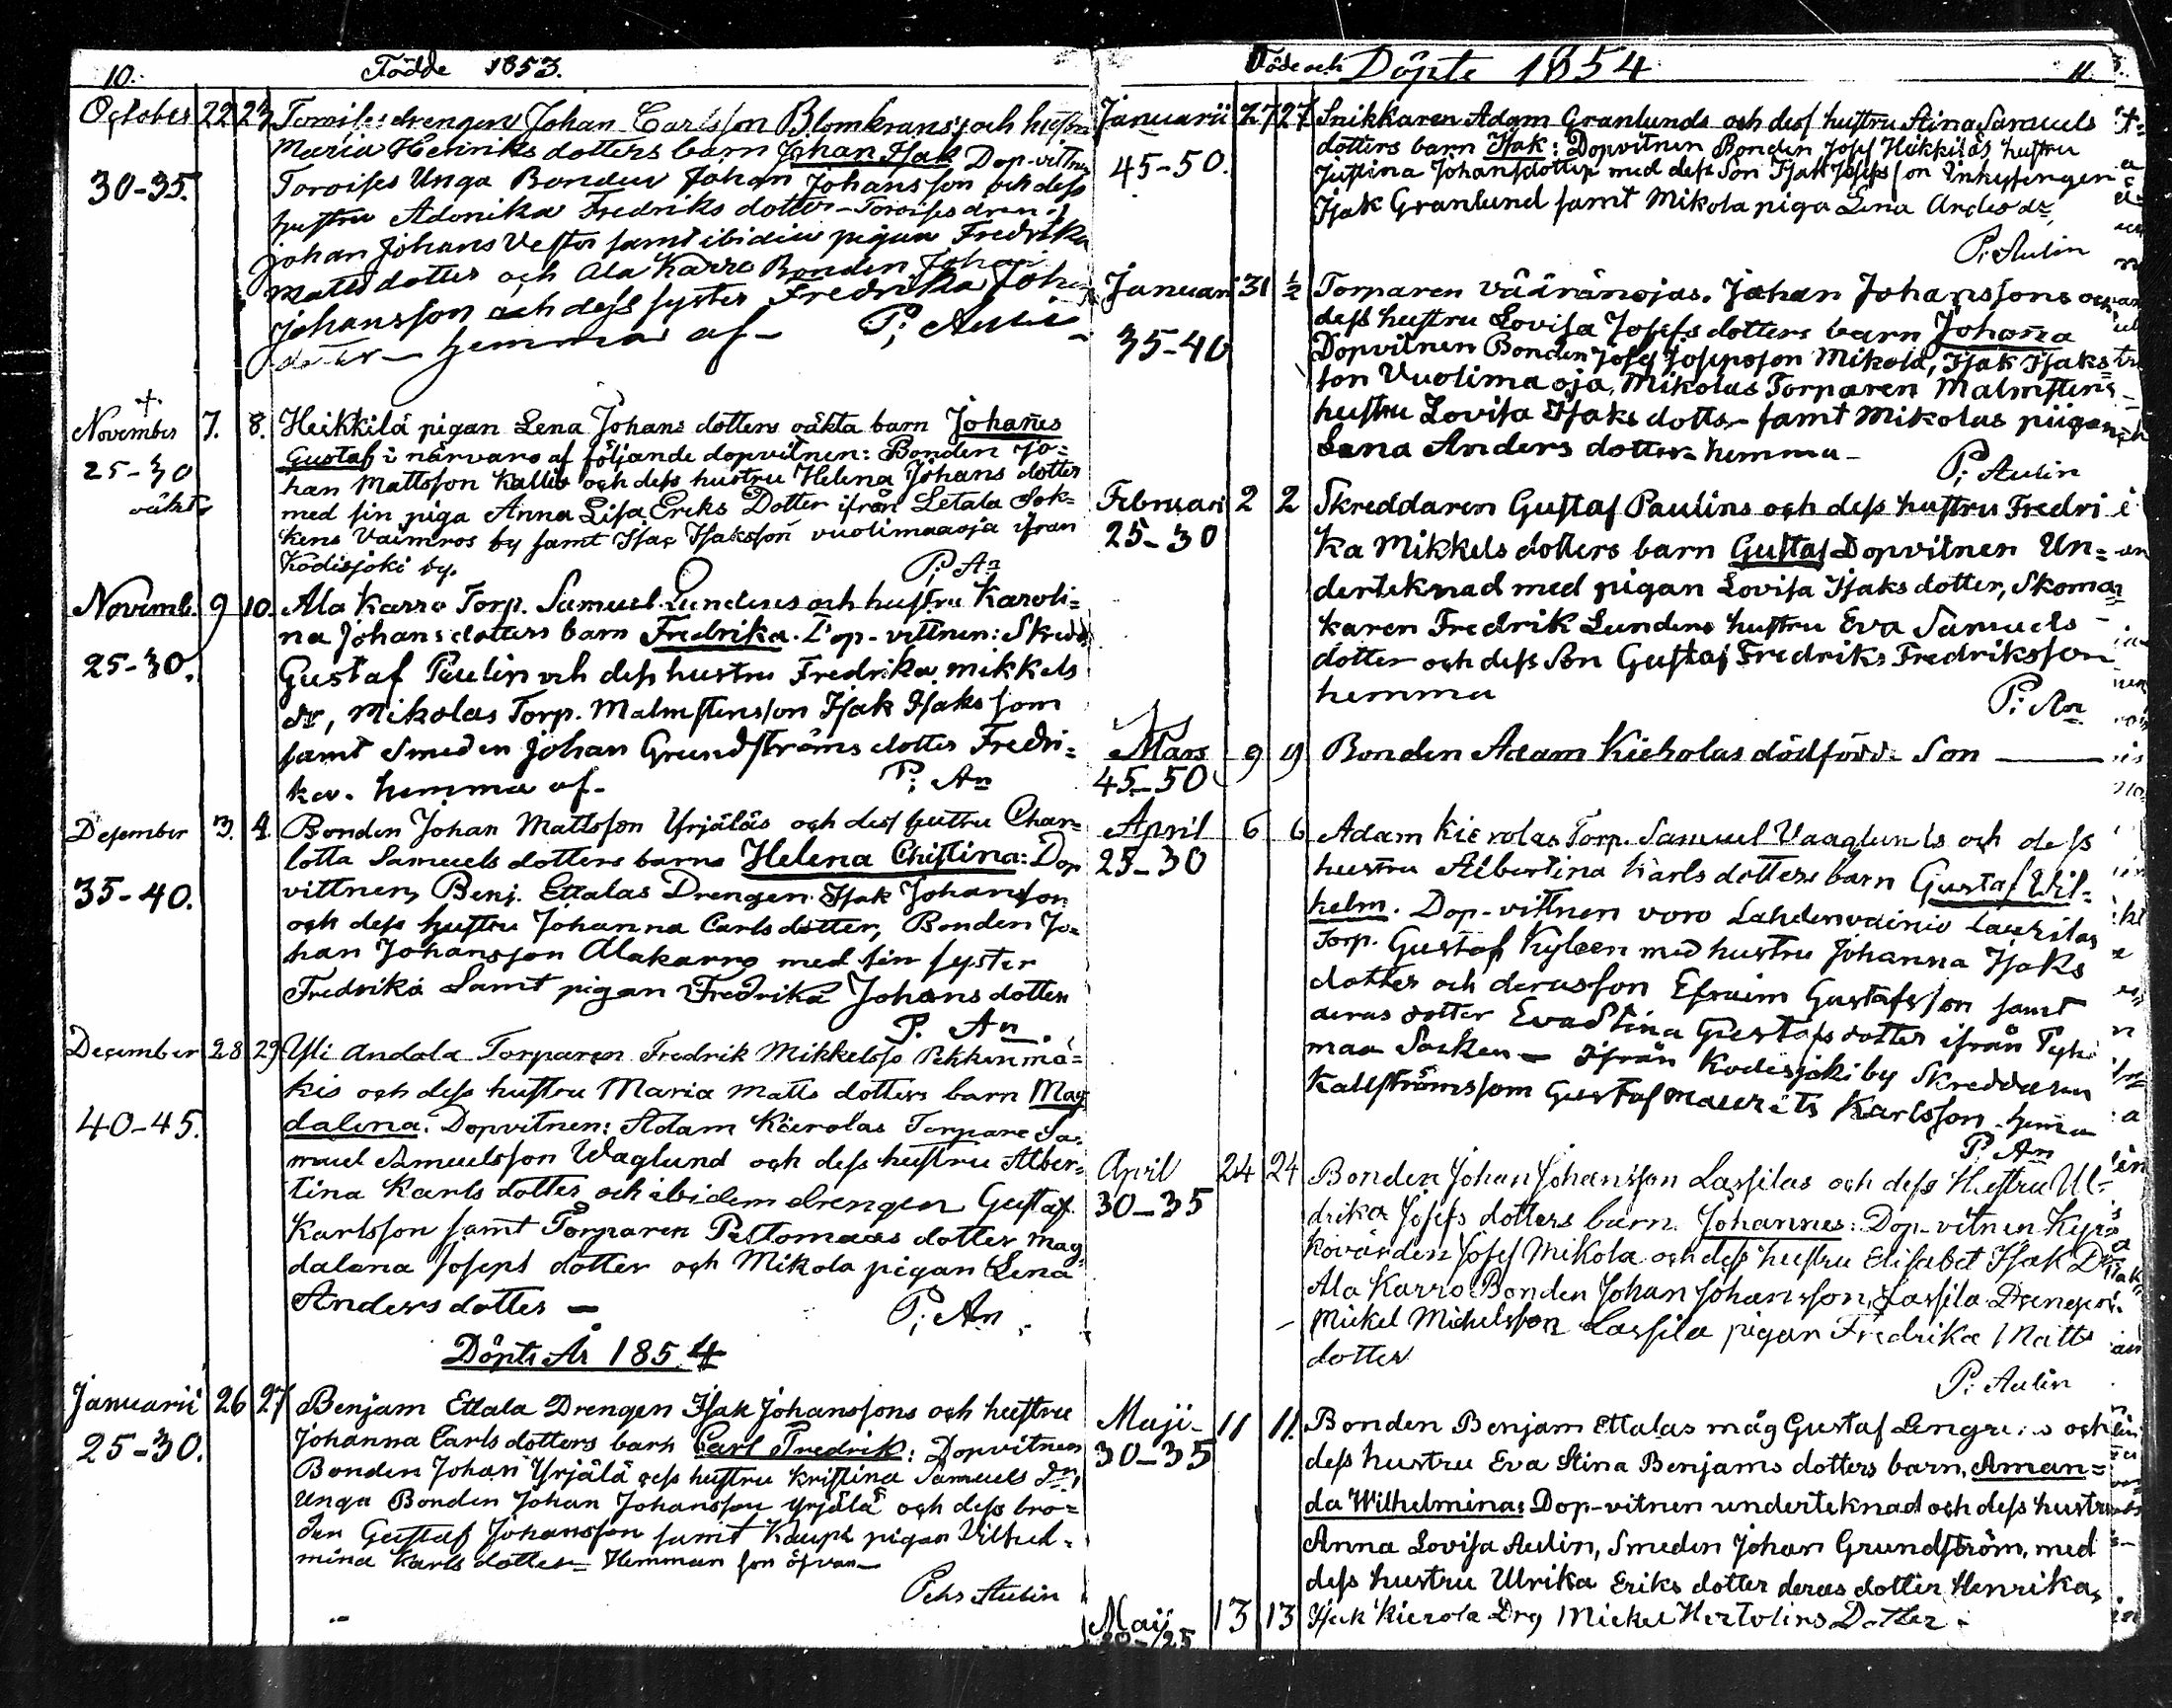 10. Födde 1853.
October 22 23 Toroises drengen Johan Carlsson Blomkrans's och hustru
Maria Henriks dotters barn Johan Isak Dop-vittnen
30-35. Toroises Unga Bonden Johan Johansson och dess
hustru Adonika Fredriks dotter - Toroises dren-
Johan Johans Vester samt ibidem pigan Fredrika
Matts dotter och Ala Karro Bonden Johan
Johansson och dess syster Fredrika Joha
dotter - hemma af - P; Aulin
+
November 7. 8. Heikkilä pigan Lena Johans dotters oäkta barn Johañes
25-30 Gustaf i närvaro af följande dopvitnen: Bonden Jo=
oäkta han Mattsson Kallio och dess hustru Helena Johans dotter
med sin piga Anna Lisa Eriks Dotter ifrån Letala Sok=
kens Vaimros by samt Isac Isaksson vuolimaaoja ifran
Kodisjoki by. P; An
Novemb. 9 10. Ala Karro Torp. Samuel Lunden's och hustru Karoli=
na Johans dotters barn Fredrika. Dop-vittnen: Skredd
25-30. Gustaf Paulin och dess hustru Fredrika mikkels
dr, Mikolas Torp. Malmstensson Isak Isaks som
samt Smeden Johan Grundströms dotter Fredri=
ka. hemma af- P; An
Desember 3. 4. Bonden Johan Mattsson Yrjäläs och dess hustru Char=
lotta Samuels dotters barn Helena Christina: Dop
35-40. vittnen, Benj. Ettalas Drengen Isak Johansson
och dess hustru Johanna Carls dotter, Bonden Jo=
han Johansson Alakarro med sin syster
Fredrika Samt pigan Fredrika Johans dotter
P. An
December 28 29 Yli Andola Torparen Fredrik Mikkelsso Pekkenmä=
kis och dess hustru Maria Matts dotters barn Mag
40-45. dalena. Dopvitnen: Adam Kierolas Torpare Sa=
muel Samuelsson Waglund och dess hustru Alber=
tina Karls dotter och ibidem drengen Gustaf
Karlsson samt Torparen Peltomaas dotter mag=
dalena Joseps dotter och Mikola pigan Lena
Anders dotter - P; An
Döpte År 1854
Januarii 26 27 Benjam Ettala Drengen Isak Johanssons och hustru
25-30. Johanna Carls dotters barn Carl Fredrik: Dopvitnen
Bonden Johan Yrjälä dess hustru Kristina Samuels dr,
Unga Bonden Johan Johansson Yrjälä och dess bro=
der Gustaf Johansson samt Kaupi pigan Vilhel-
mina Karls dotter = Hemman son öfvan
Pehr Aulin
Föde och Döpte 1854 11.
Januarii 27 27 Snikkaren Adam Granlunds och dess hustru Stina Samuels
45-50. dotters barn Isak: Dopvitnen Bonden Josef Heikkiläs hustru
Justina Johansdotter med dess Son Isak Josefsson Inhysingen
Isak Granlund samt Mikola piga Lena Anders dr
P: Aulin
Januari 31 ½ Torparen Vääränojas. Johan Johanssons och
35-40 dess hustru Lovisa Josefs dotters barn Johana
Dopvitnen Bonden Josef Josepsson Mikola, Isak Isaks=
son Vuolimaoja, Mikolas Torparen Malmstens
hustru Lovisa Isaks dotter samt Mikolas piigan
Lena Anders dotter hemma -
P; Aulin
Februari 2 2 Skreddaren Gustaf Paulins och dess hustru Fredri
25-30 ka Mikkels dotters barn Gustaf Dopvitnen Un=
derteknad med pigan Lovisa Isaks dotter, Skoma=
karen Fredrik Lundens hustru Eva Samuels -
dotter och dess Son Gustaf Fredriks Fredriksson
hemma P: An
Mars 9 9 Bonden Adam Kieholas dödfödd Son
45-50
April 6 6 Adam Kierolas Torp. Samuel Vaaglunds och dess
25-30 hustru Albertina Karls dotters barn Gustaf Wil=
helm. Dop-vittnen voro Lahdenvainio Laurilas
Torp. Gustaf Kyleen med hustru Johanna Isaks
dotter och deras son Efraim Gustafsson samt
deras dotter Eva Stina Gustafs dotter ifrån Pyhä
maa Socken - Ifrån Kodisjoki by Skreddaren
Kallströms som Gustaf Maurits Karlsson. hemma
P. An
April 24 24 Bonden Johan Johansson Lassilas och dess Hustru Ul-
30-35 drika Josefs dotters barn Johannes: Dop-vitnen Kyr=
kovärden Josef Mikola och dess hustru Elisabet Isak Dr
Ala Karro Bonden Johan Johansson, Lassila Drengen
Mickel Michelsson Lassila pigan Fredrika Matts
dotter
P: Aulin
Maji 11 11. Bonden Benjam Ettalas måg Gustaf Lengrens och
30-35 dess hustru Eva Stina Benjams dotters barn, Aman=
da Wilhelmina: Dop-vitnen underteknad och dess hustru
Anna Lovisa Aulin, Smeden Johan Grundström, med
dess hustru Ulrika Eriks dotter deras dotter Henrika,
Maij 13 13 Isak Kierola Drg Mickel Hertolins Dotter
20-25